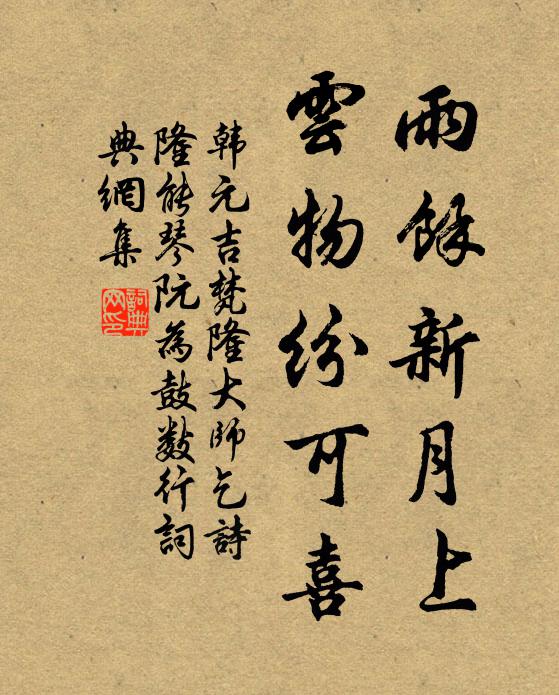 雨餘新月上
雲物紛可喜
韩元吉梵隆大師乞詩
隆能琴阮為鼓數行詞
典網集
詞典网印